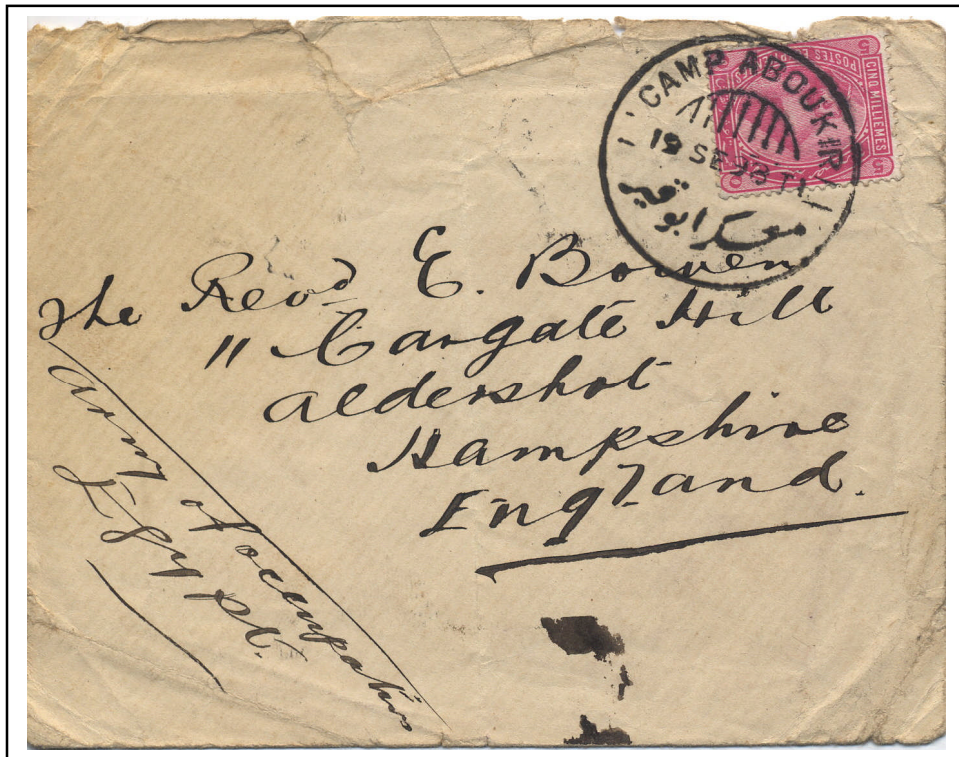 CAMP ABOUKIR
19 SE 93 T1
معسكر ابو قير
CINQ MILLIEMES
5
The Revd E. Bowen
11 Cargate Hill
Aldershot
Hampshire
England.
Army of occupation
Egypt.